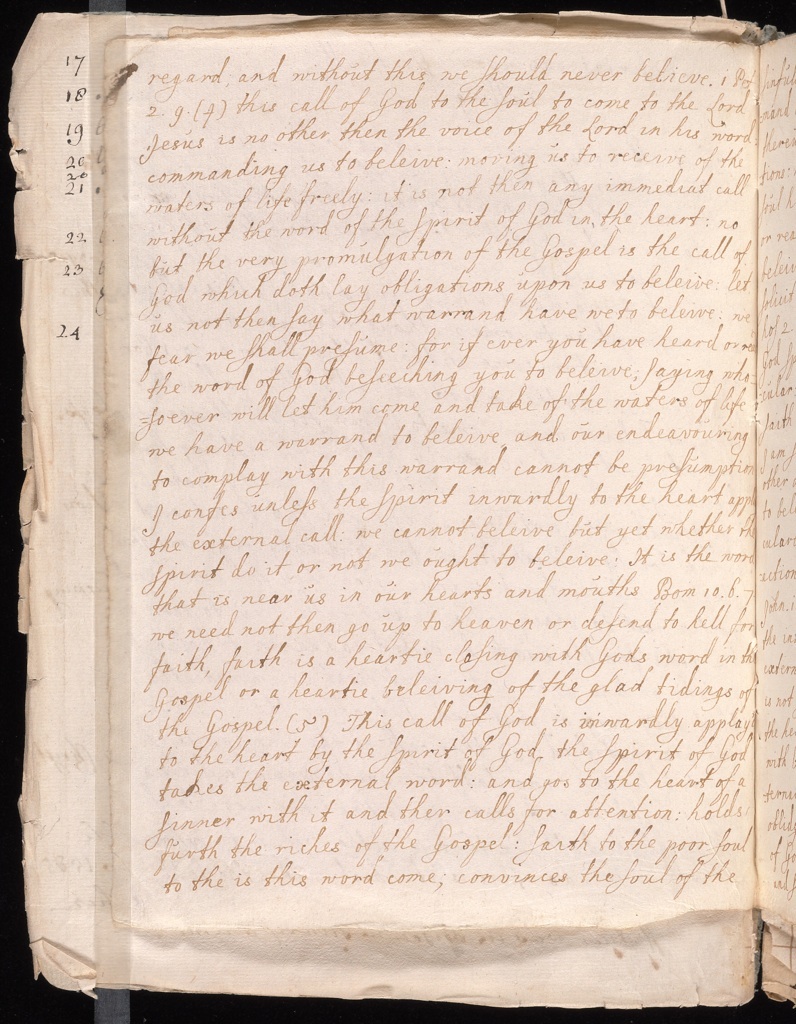 17
18
19
20
20
21
22
23
24
regard, and without this we should never believe. 1 Pet
2. 9. (4) this call of God to the soul to come to the Lord
Jesus is no other then the voice of the Lord in his word
commanding us to beleive: moving us to receive of the
waters of life freely: it is not then any immediat call
without the word of the spirit of God in the heart: no
but the very promulgation of the Gospel is the call of
God which doth lay obligations upon us to beleive: let
us not then say what warrand have we to beleive: we
fear we shall presume: for if ever you have heard or
the word of God beseeching you to beleive; saying who=
=soever will let him come and take of the waters of life
we have a warrand to beleive and our endeavouring
to complay with this warrand cannot be presumption
I confes unless the spirit inwardly to the heart appl
the external call: we cannot beleive but yet whether the
spirit do it or not we ought to beleive: It is the word
that is near us in our hearts and mouths Rom 10. 6. 7
we need not then go up to heaven or desend to hell for
faith, faith is a heartie closing with Gods word in the
Gospel or a heartie beleiving of the glad tidings of
the Gospel. (5) This call of God is inwardly applay
to the heart by the spirit of God, the spirit of God
takes the external word: and gos to the heart of a
sinner with it and ther calls for attention: holds
furth the riches of the Gospel: saith to the poor soul
to the is this word come; convinces the soul of the